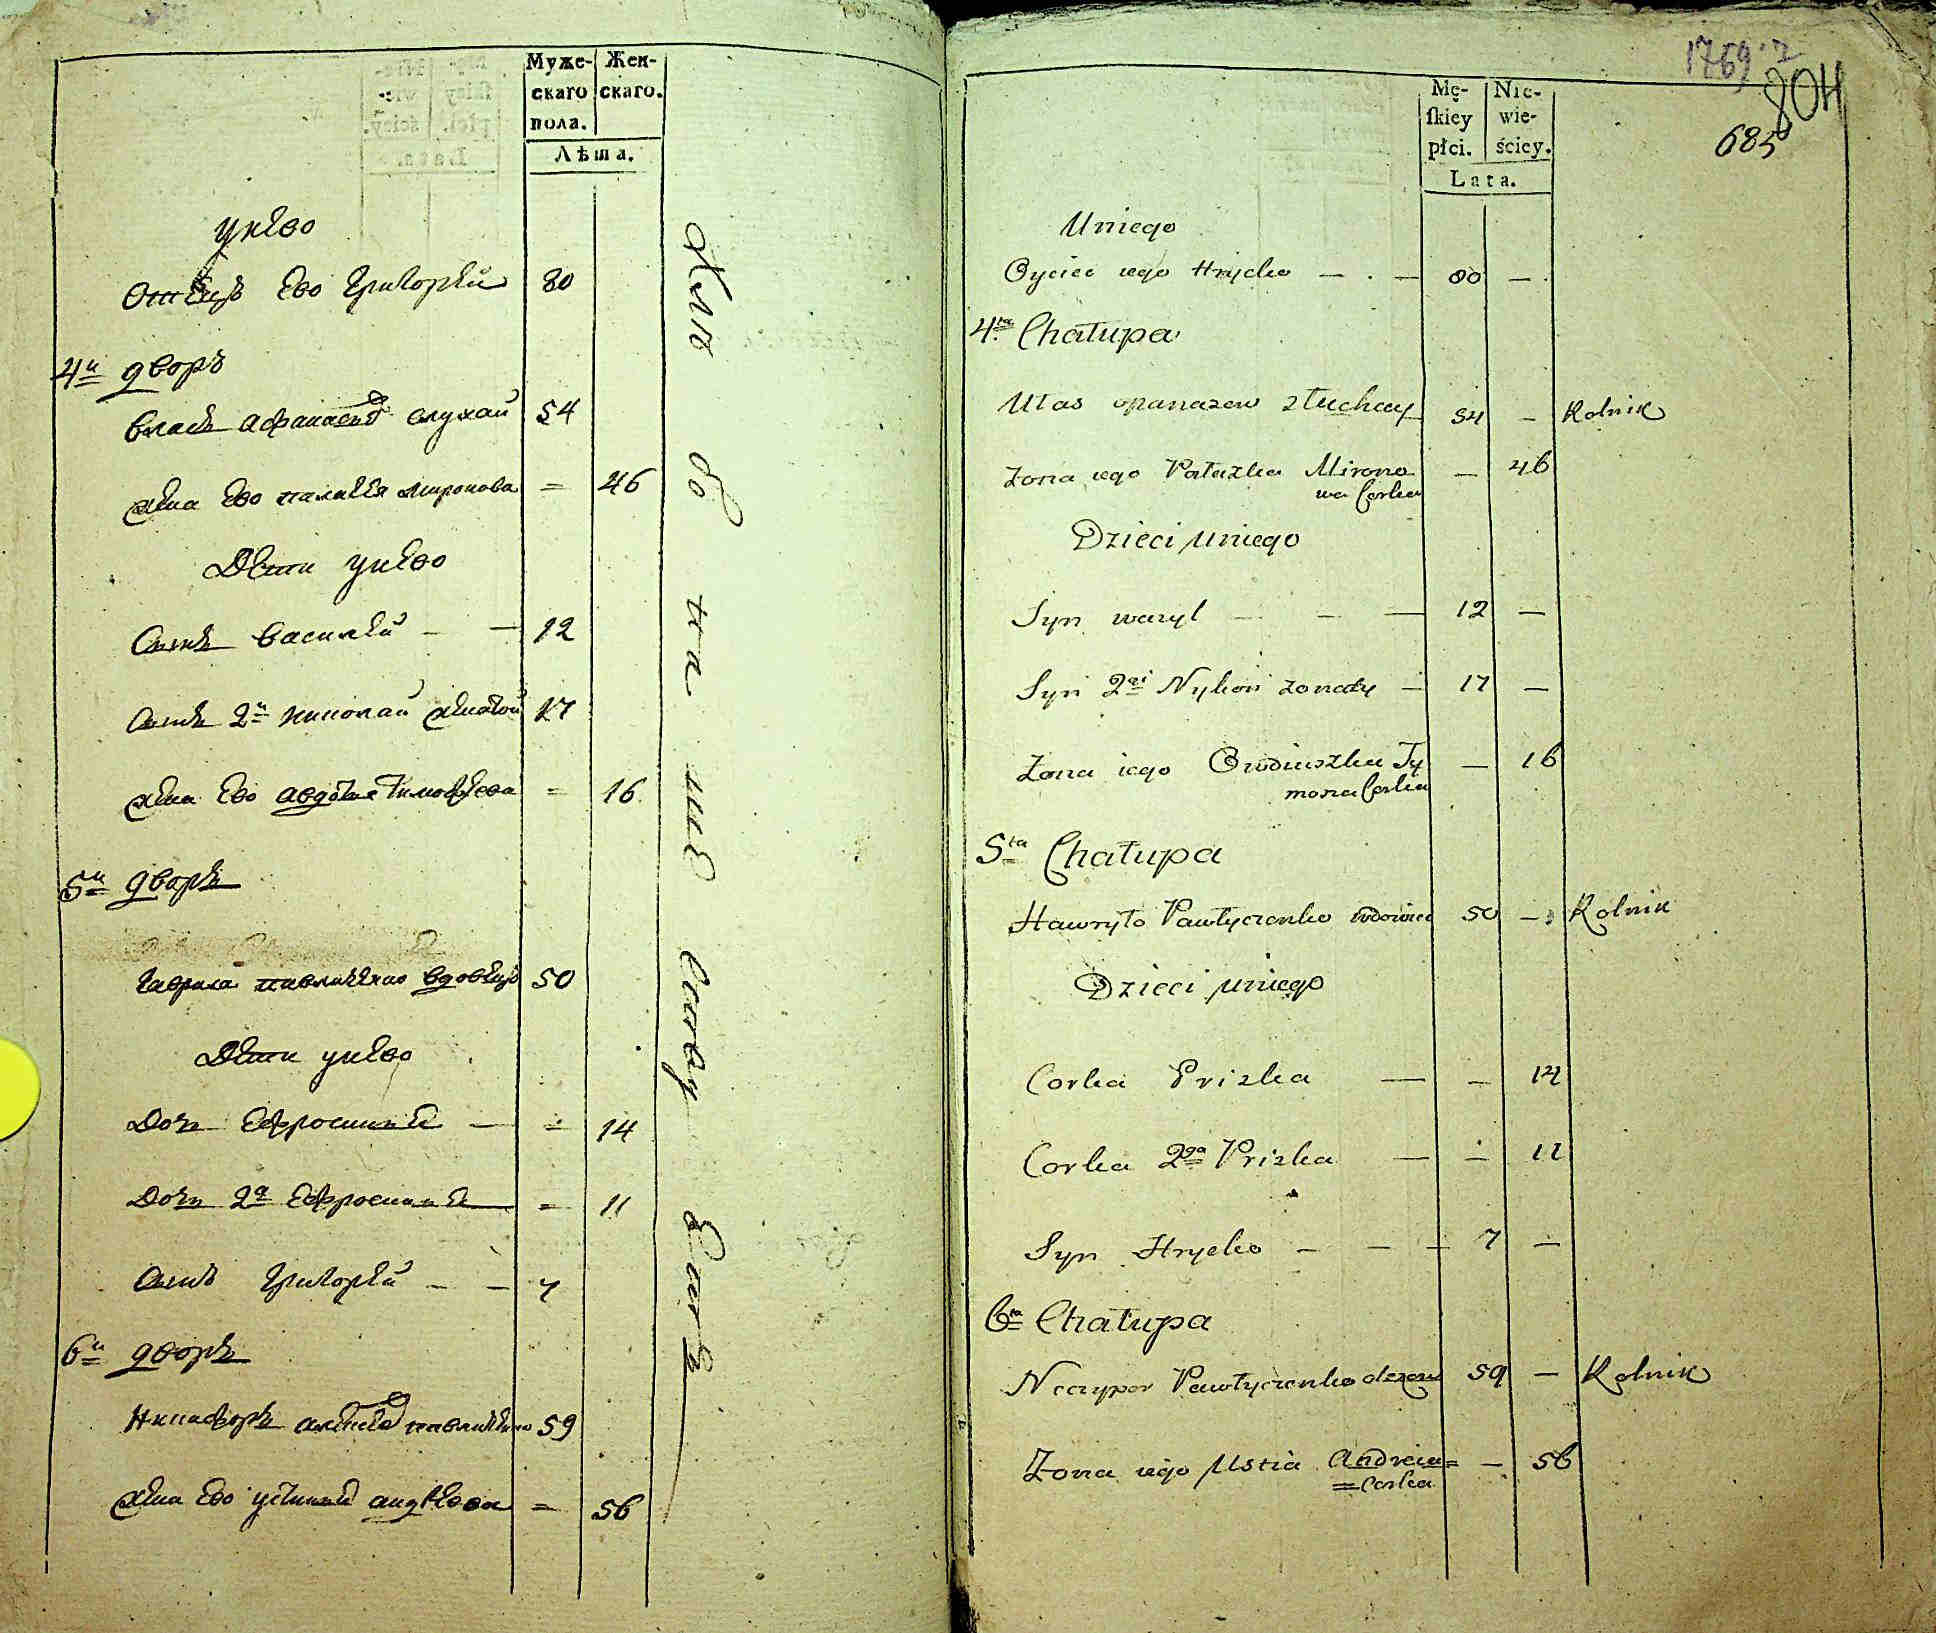 Муже- Жен-
скаго скаго.
пола.
Лѣта.
унево
Отецъ ево григорей 80
4й дворъ
власъ афанасьевъ слухай 54
жена ево палагея миронова = 46
Дети унево
Сынъ василей — — 12
Сынъ 2й николай женатой 17
жена ево авдотья тимофеева = 16
5й дворъ
гаврила павличенко вдовецъ 50
Дети унево
Дочь ефросинья — = 14
Дочь 2я ефросинья = 11
Сынъ григорей — — 7
6й дворъ
Никифоръ павличенко 59
жена ево устинья андреева = 56
1769.
804
685
Mę- Nie-
ſkiey wie-
płci. ściey.
Lata.
Uniego
Oyciec iego Hrycko — . — 80 —
4ta Chałupa
Ułas opanazow słuchay 54 — Rolnik
Zona iego Pałazka Mirono — 46
wa Corka
Dzieci uniego
Syn wazyl — — — 12 —
Syn 2gi Nykon zonaty — 17 —
Zona iego Owdiuszka Ty — 16
mosza Corka
5ta Chałupa
Hawryło Pawłyczenko wdowiec 50 — Rolnik
Dzieci uniego
Corka Prizka — — 14
Corka 2ga Prizka — — 11
Syn Hrycko — — — 7 —
6ta Chałupa
Neczypor Pawłyczenko 59 — Rolnik
Zona iego Ustia Andreiu= — 56
=Corka